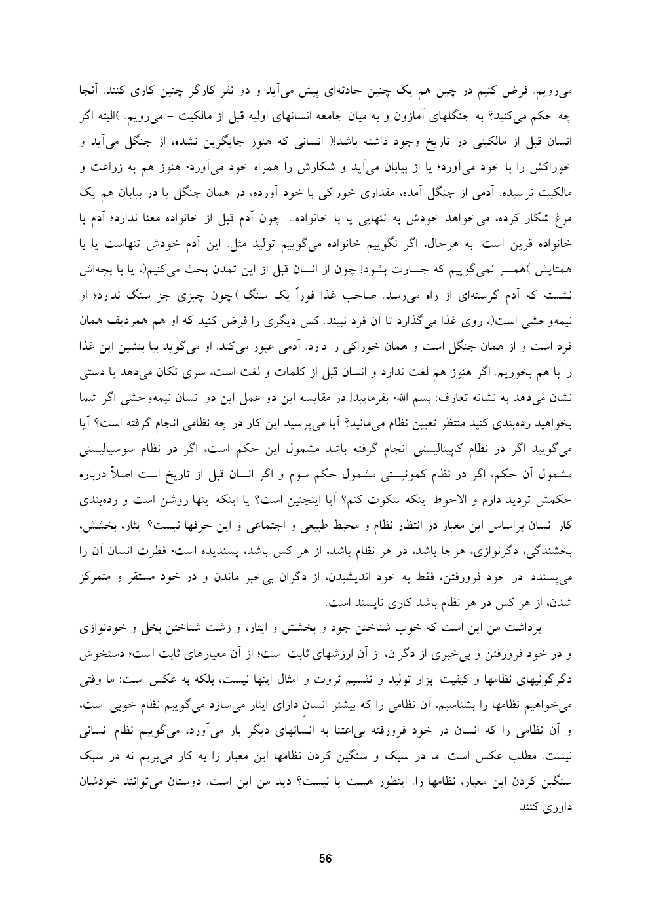 می‌رویم. فرض کنیم در چین هم یک چنین حادثه‌ای پیش می‌آید و دو نفر کارگر چنین کاری کنند. آنجا
چه حکم می‌کنید؟ به جنگلهای آمازون و به میان جامعه انسانهای اولیه قبل از مالکیت - می‌رویم. )البته اگر
انسان قبل از مالکیتی در تاریخ وجود داشته باشد!( انسانی که هنوز جایگزین نشده، از جنگل می‌آید و
خوراکش را با خود می‌آورد؛ یا از بیابان می‌آید و شکارش را همراه خود می‌آورد؛ هنوز هم به زراعت و
مالکیت نرسیده. آدمی از جنگل آمده، مقداری خوراکی با خود آورده، در همان جنگل یا در بیابان هم یک
مرغ شکار کرده، می‌خواهد خودش به تنهایی یا با خانواده.. چون آدم قبل از خانواده معنا ندارد؛ آدم با
خانواده قرین است. به هرحال، اگر نگوییم خانواده می‌گوییم تولید مثل. این آدم خودش تنهاست یا با
همتایش )همسر نمی‌گوییم که جسارت بشود! چون از انسان قبل از این تمدن بحث می‌کنیم(، یا با بچه‌اش
نشسته که آدم گرسنه‌ای از راه می‌رسد. صاحب غذا فوراً یک سنگ )چون چیزی جز سنگ ندارد؛ او
نیمه‌وحشی است(، روی غذا می‌گذارد تا آن فرد نبیند. کس دیگری را فرض کنید که او هم همردیف همان
فرد است و از همان جنگل است و همان خوراکی را دارد. آدمی عبور می‌کند. او می‌گوید بیا بنشین این غذا
را با هم بخوریم. اگر هنوز هم لغت ندارد و انسان قبل از کلمات و لغت است، سری تکان می‌دهد یا دستی
نشان می‌دهد به نشانه تعارف: بسم الله؛ بفرمایید! در مقایسه این دو عمل این دو انسان نیمه‌وحشی اگر شما
بخواهید رده‌بندی کنید منتظر تعیین نظام می‌مانید؟ آیا می‌پرسید این کار در چه نظامی انجام گرفته است؟ آیا
می‌گویید اگر در نظام کاپیتالیستی انجام گرفته باشد مشمول این حکم است، اگر در نظام سوسیالیستی
مشمول آن حکم، اگر در نظام کمونیستی مشمول حکم سوم و اگر انسان قبل از تاریخ است اصلاً درباره
حکمش تردید دارم و الاحوط اینکه سکوت کنم؟ آیا اینچنین است؟ یا اینکه اینها روشن است و رده‌بندی
کار انسان براساس این معیار در انتظار نظام و محیط طبیعی و اجتماعی و این حرفها نیست؟ ایثار، بخشش،
بخشندگی، دگرنوازی، هرجا باشد، در هر نظام باشد، از هر کس باشد، پسندیده است؛ فطرت انسان آن را
می‌پسندد. در خود فرورفتن، فقط به خود اندیشیدن، از دگران بی‌خبر ماندن و در خود مستقر و متمرکز
شدن، از هر کس در هر نظام باشد کاری ناپسند است.
برداشت من این است که خوب شناختن جود و بخشش و ایثار، و زشت شناختن بخل و خودنوازی
و در خود فرورفتن و بی‌خبری از دگران، از آن ارزشهای ثابت است؛ از آن معیارهای ثابت است؛ دستخوش
دگرگونیهای نظامها و کیفیت ابزار تولید و تقسیم ثروت و امثال اینها نیست، بلکه به عکس است: ما وقتی
می‌خواهیم نظامها را بشناسیم، آن نظامی را که بیشتر انسانِ دارای ایثار می‌سازد می‌گوییم نظام خوبی است،
و آن نظامی را که انسان در خود فرورفته بی‌اعتنا به انسانهای دیگر بار می‌آورد، می‌گوییم نظام انسانی
نیست. مطلب عکس است. ما در سبک و سنگین کردن نظامها این معیار را به کار می‌بریم نه در سبک
سنگین کردن این معیار، نظامها را. اینطور هست یا نیست؟ دید من این است. دوستان می‌توانند خودشان
داوری کنند.
56